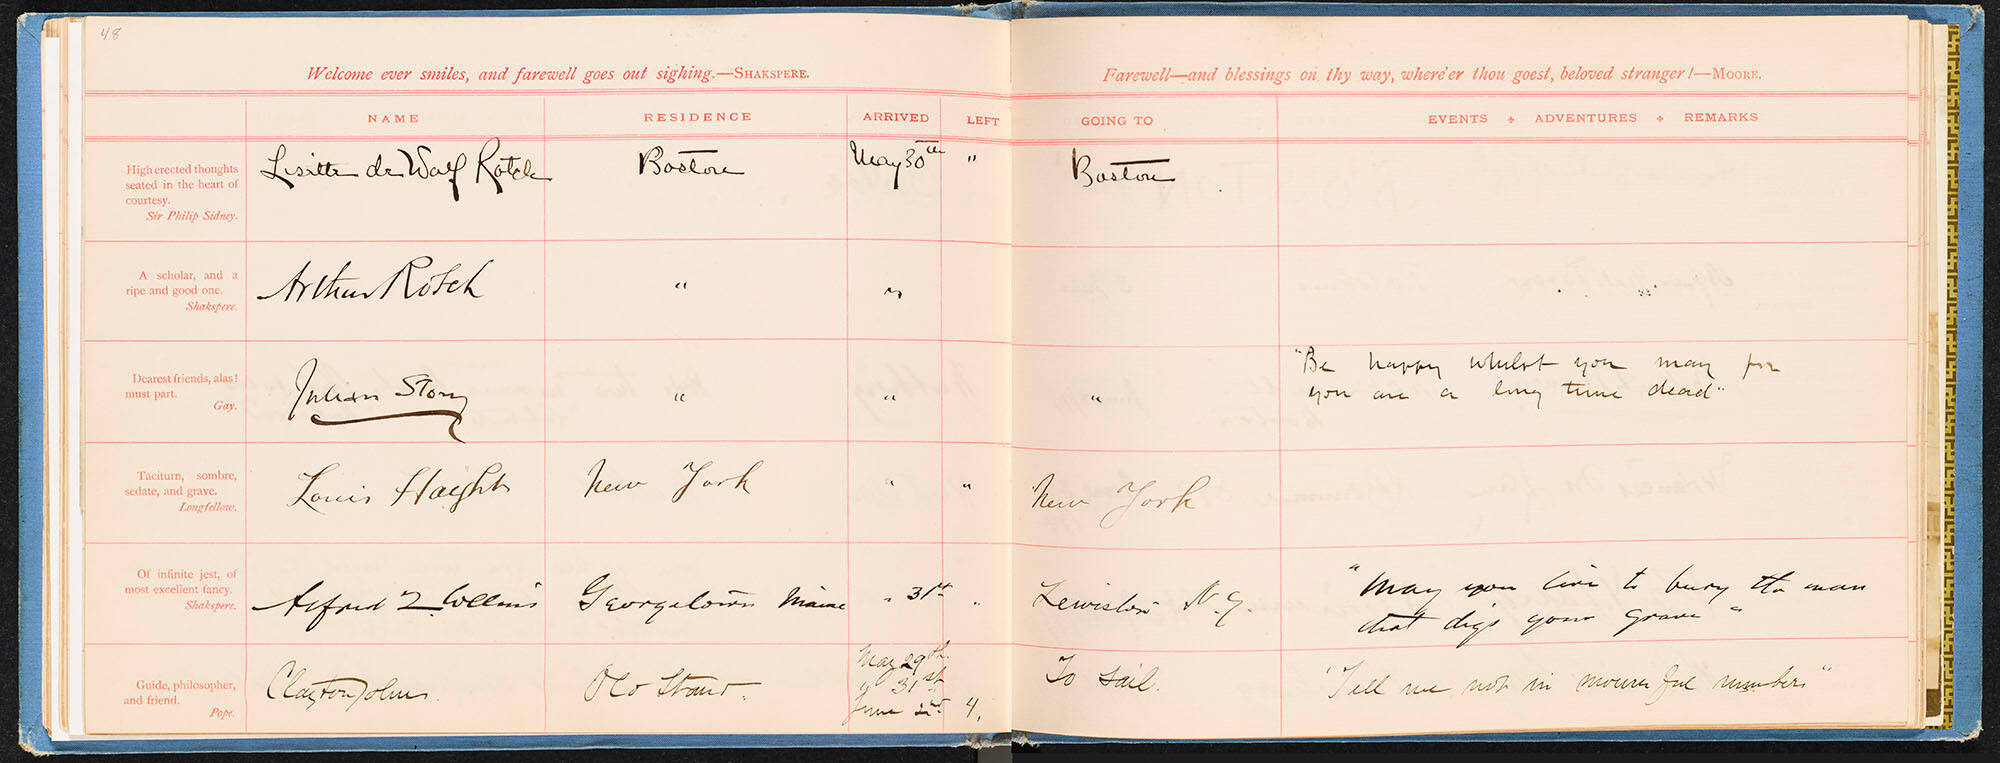 48
Welcome ever smiles, and farewell goes out sighing.—SHAKSPERE.
Farewell—and blessings on thy way, where'er thou goest, beloved stranger!—MOORE.
NAME RESIDENCE ARRIVED LEFT GOING TO EVENTS ✦ ADVENTURES ✦ REMARKS
High erected thoughts
seated in the heart of
courtesy.
Sir Philip Sidney.
Lisette de Wolf Rotch Boston May 30th " Boston
A scholar, and a
ripe and good one.
Shakspere.
Arthur Rotch " "
Dearest friends, alas!
must part.
Gay.
Julian Story " " "
"Be happy whilst you may for
you are a long time dead"
Taciturn, sombre,
sedate, and grave.
Longfellow.
Louis Haight New York " " New York
Of infinite jest, of
most excellent fancy.
Shakspere.
Alfred Q Collins Georgetown Maine " 31st " Lewiston N.Y.
"May you live to bury the man
that digs your grave"
Guide, philosopher,
and friend.
Pope.
Clayton Johns Old Stand.
May 29th
" 31st
June 4, To sail.
"Tell me not in mournful numbers"